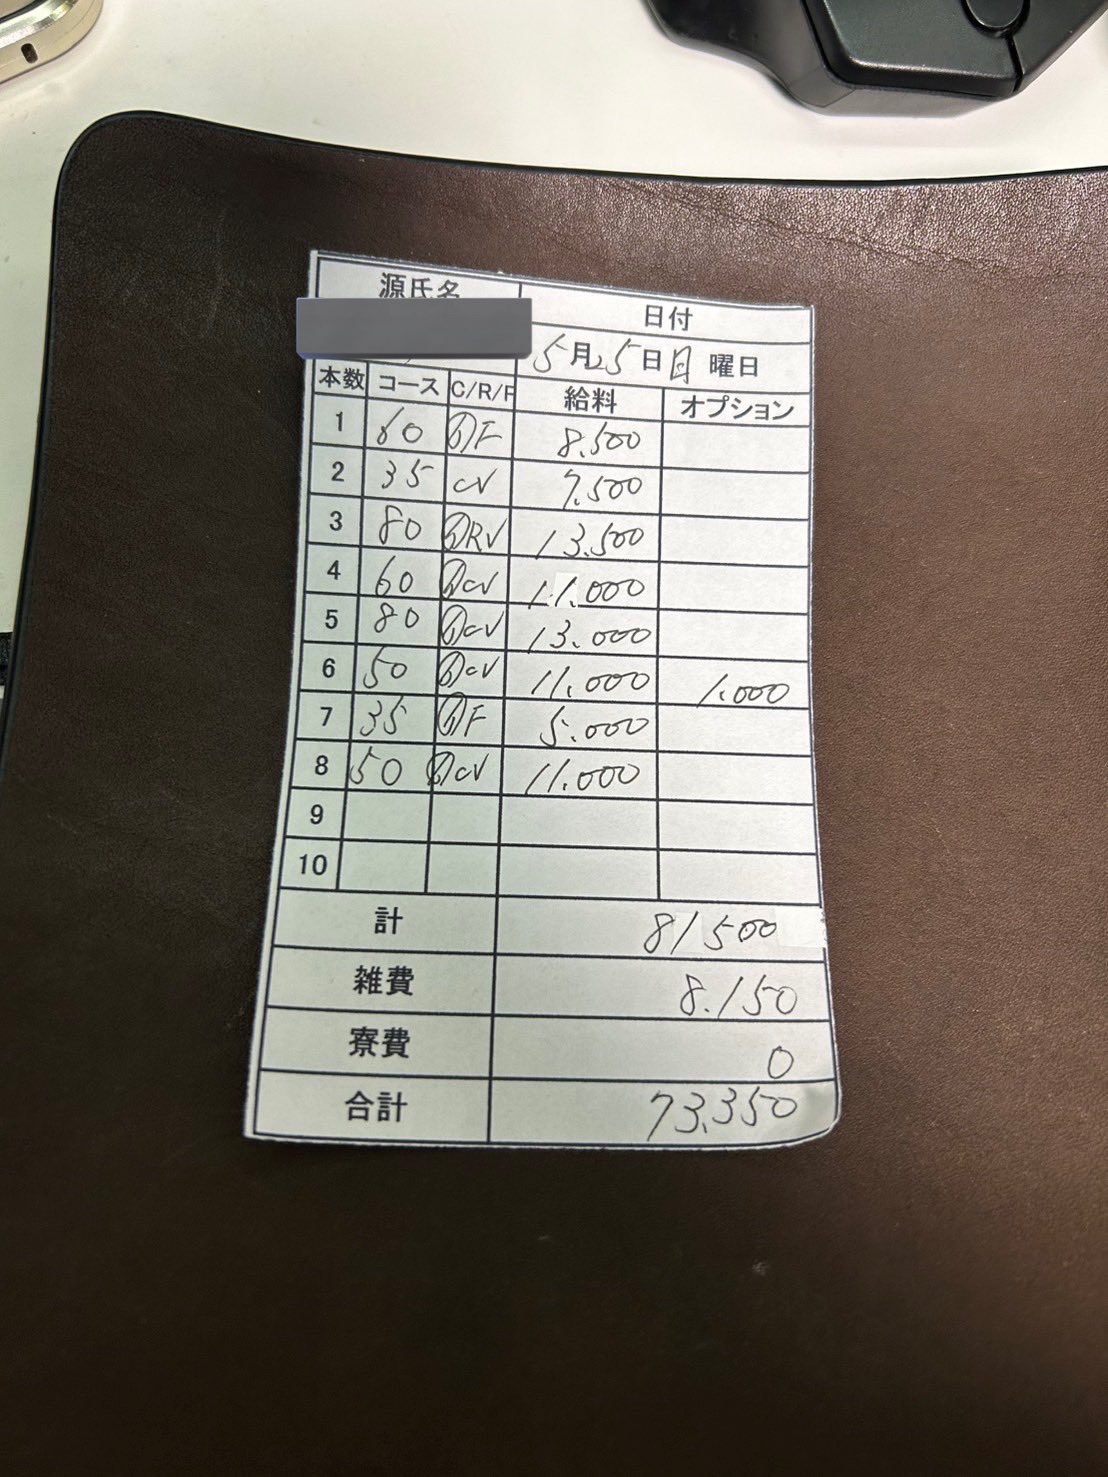 源氏名 日付
5月25日 日 曜日
本数 コース C/R/F 給料 オプション
1 60 F 8.500
2 35 CV 7.500
3 80 RV 13.500
4 60 CV 11.000
5 80 CV 13.000
6 50 CV 11.000 1.000
7 35 F 5.000
8 50 CV 11.000
9
10
計 81500
雑費 8.150
寮費 0
合計 73.350